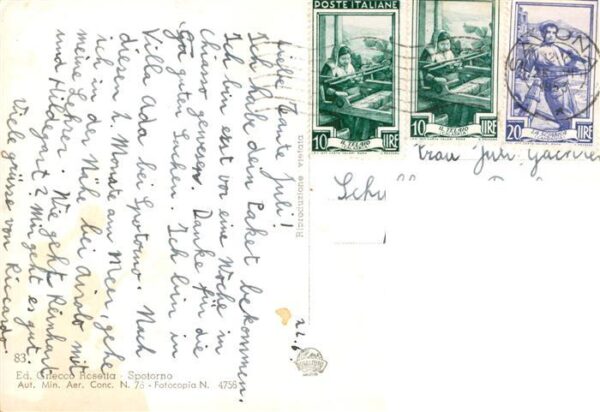 Liebe Tante Juli!
Ich habe dein Paket bekommen.
Ich bin erst vor eine Woche in
Chiasso gewesen. Danke für die
guten Sachen. Ich bin in
Villa Ada bei Spotorno. Nach
diesen 2 Monate am Meer, gehe
ich in der Nähe bei mit
meine Lehrer. Wie geht Reinhart
und Hildegart? Mir geht es gut.
Viele grüsse von Riccardo.
22.6.
POSTE ITALIANE
10 LIRE
10 LIRE
20 LIRE
Frau Juli
Riproduzione vietata
83
Ed. Griecco Rosetta - Spotorno
Aut. Min. Aer. Conc. N. 76 - Fotocopia N. 4756